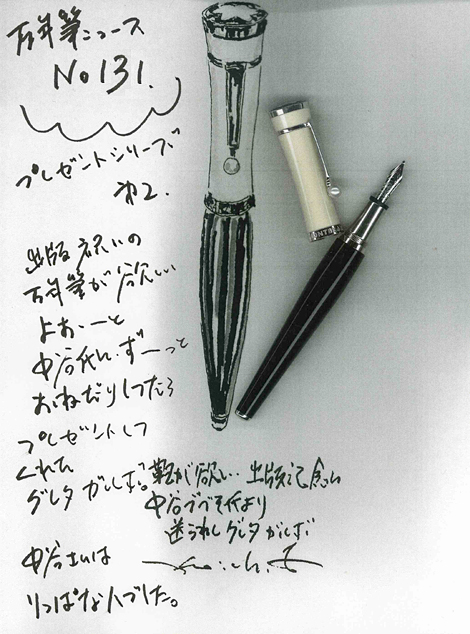 万年筆ニュース
No 131.
プレゼントシリーズ
その2.
出版祝いの
万年筆が欲しい
よぉ〜と
中谷氏に、ずーっと
おねだりしてたら
プレゼントして
くれた
グレタ ガルボ。
中谷さんは
りっぱな人でした。
が欲しい 出版記念に
中谷でべそ氏より
送られし グレタ ガルボ